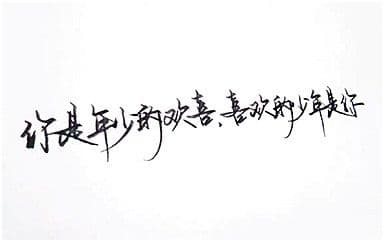 你是年少的欢喜、喜欢的少年是你